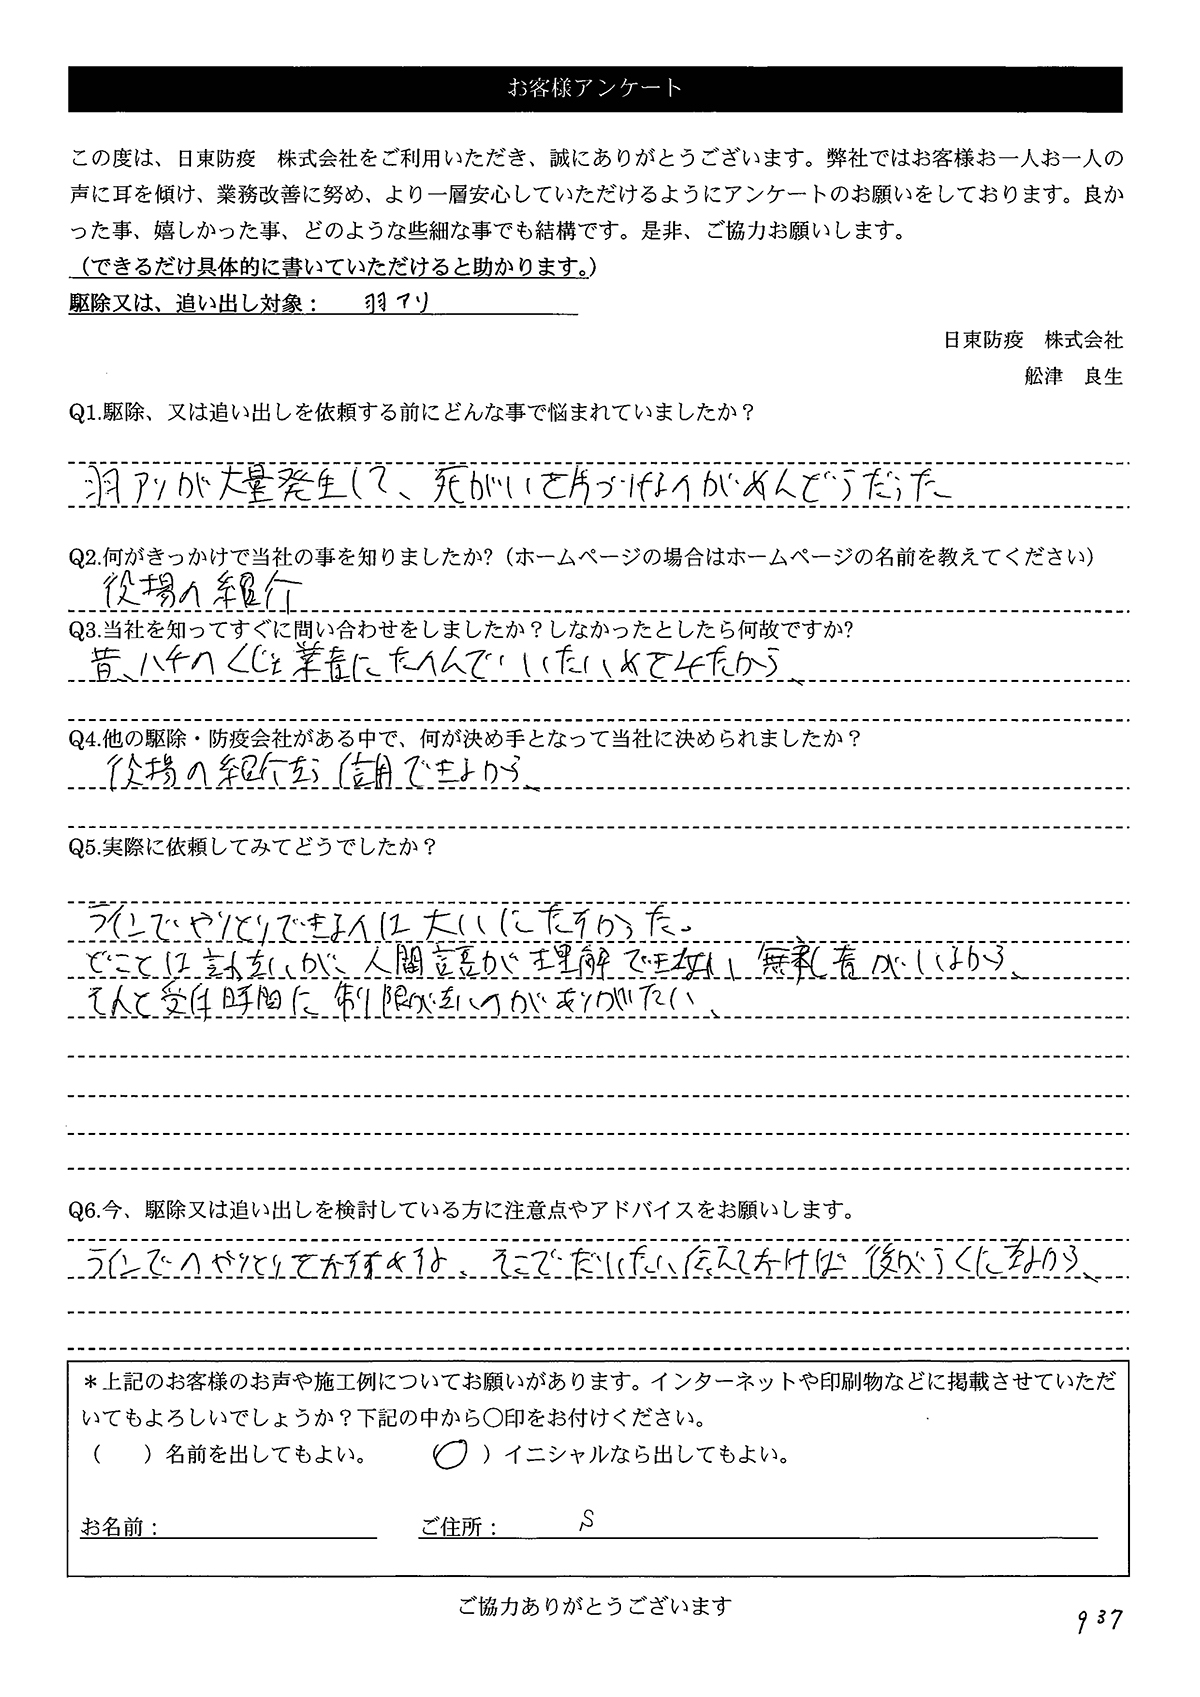 お客様アンケート
この度は、日東防疫　株式会社をご利用いただき、誠にありがとうございます。弊社ではお客様お一人お一人の
声に耳を傾け、業務改善に努め、より一層安心していただけるようにアンケートのお願いをしております。良か
った事、嬉しかった事、どのような些細な事でも結構です。是非、ご協力お願いします。
（できるだけ具体的に書いていただけると助かります。）
駆除又は、追い出し対象：　羽アリ
日東防疫　株式会社
舩津　良生
Q1.駆除、又は追い出しを依頼する前にどんな事で悩まれていましたか？
羽アリが大量発生して、死がいを片づけるのがめんどうだった
Q2.何がきっかけで当社の事を知りましたか?（ホームページの場合はホームページの名前を教えてください）
役場の紹介
Q3.当社を知ってすぐに問い合わせをしましたか？しなかったとしたら何故ですか?
昔、ハチのくじょ業者にたのんで、いたいめをみたから、
Q4.他の駆除・防疫会社がある中で、何が決め手となって当社に決められましたか？
役場の紹介なら信用できるから、
Q5.実際に依頼してみてどうでしたか？
ラインでやりとりできるのは大いにたすかった。
どことは言わないが、人間言語が理解できない無礼者がいるから、
それと受付時間に制限がないのがありがたい、
Q6.今、駆除又は追い出しを検討している方に注意点やアドバイスをお願いします。
ラインでのやりとりをおすすめするよ、そこでだいたい伝えておけば後がらくになるから、
＊上記のお客様のお声や施工例についてお願いがあります。インターネットや印刷物などに掲載させていただ
いてもよろしいでしょうか？下記の中から〇印をお付けください。
（　　）名前を出してもよい。　（〇）イニシャルなら出してもよい。
お名前：　ご住所：　S
ご協力ありがとうございます
937